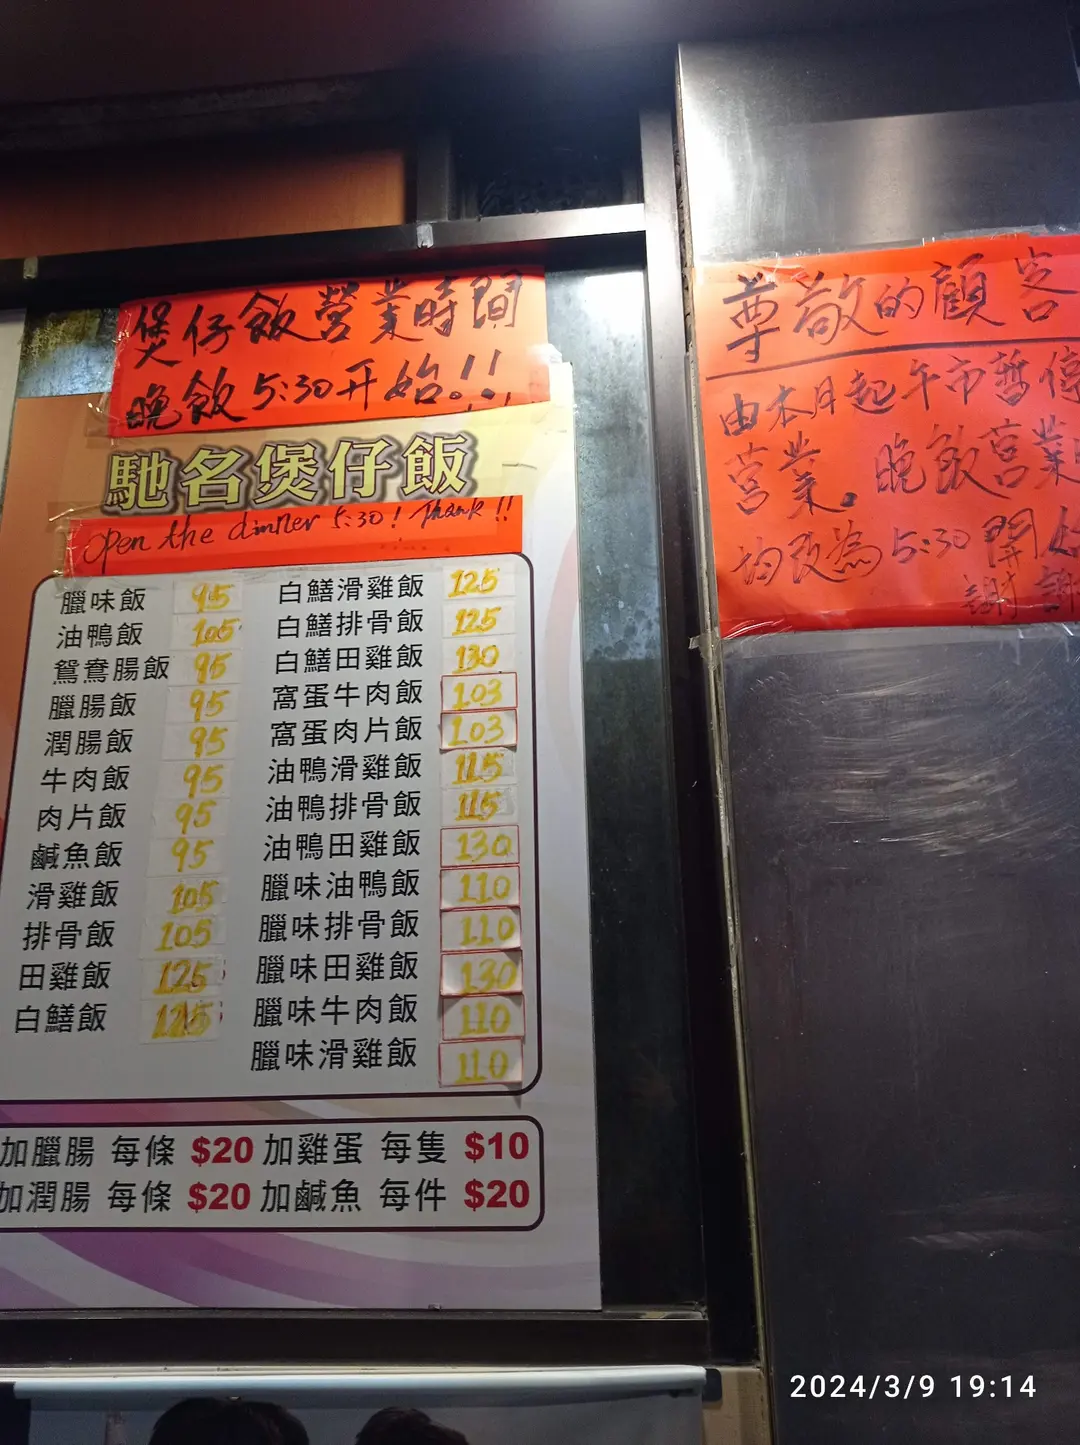 煲仔飯營業時間
晚飯5:30开始!!
馳名煲仔飯
open the dinner 5:30! Thank!!
臘味飯 95
油鴨飯 105
鴛鴦腸飯 95
臘腸飯 95
潤腸飯 95
牛肉飯 95
肉片飯 95
鹹魚飯 95
滑雞飯 105
排骨飯 105
田雞飯 125
白鱔飯 125
白鱔滑雞飯 125
白鱔排骨飯 125
白鱔田雞飯 130
窩蛋牛肉飯 103
窩蛋肉片飯 103
油鴨滑雞飯 115
油鴨排骨飯 115
油鴨田雞飯 130
臘味油鴨飯 110
臘味排骨飯 110
臘味田雞飯 130
臘味牛肉飯 110
臘味滑雞飯 110
加臘腸 每條 $20 加雞蛋 每隻 $10
加潤腸 每條 $20 加鹹魚 每件 $20
尊敬的顧客
由本月起午市暫停
營業。晚飯營業時
均改為5:30開始
謝謝
2024/3/9 19:14